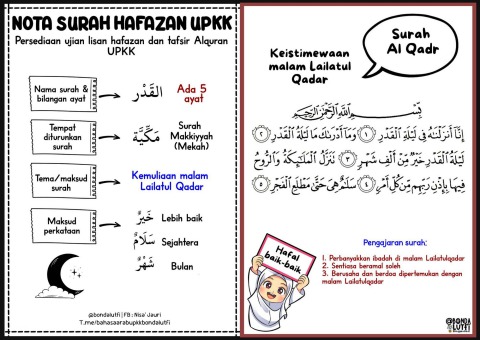 NOTA SURAH HAFAZAN UPKK
Persediaan ujian lisan hafazan dan tafsir Alquran
UPKK
Nama surah &
bilangan ayat
القَدْر
Ada 5
ayat
Tempat
diturunkan
surah
مَكِّيَّة
Surah
Makkiyyah
(Mekah)
Tema/maksud
surah
Kemuliaan malam
Lailatul Qadar
Maksud
perkataan
خَيْرٌ
Lebih baik
سَلَامٌ
Sejahtera
شَهْرٌ
Bulan
@bondalutfi | FB : Nisa' Jauri
T.me/bahasaarabupkkbondalutfi
Surah
Al Qadr
Keistimewaan
malam Lailatul
Qadar
بِسْمِ اللَّهِ الرَّحْمَٰنِ الرَّحِيمِ
إِنَّا أَنزَلْنَٰهُ فِي لَيْلَةِ الْقَدْرِ ١ وَمَا أَدْرَىٰكَ مَا لَيْلَةُ الْقَدْرِ ٢
لَيْلَةُ الْقَدْرِ خَيْرٌ مِّنْ أَلْفِ شَهْرٍ ٣ تَنَزَّلُ الْمَلَٰٓئِكَةُ وَالرُّوحُ
فِيهَا بِإِذْنِ رَبِّهِم مِّن كُلِّ أَمْرٍ ٤ سَلَٰمٌ هِيَ حَتَّىٰ مَطْلَعِ الْفَجْرِ ٥
Hafal
baik-baik
Pengajaran surah:
1. Perbanyakkan ibadah di malam Lailatulqadar
2. Sentiasa beramal soleh
3. Berusaha dan berdoa dipertemukan dengan
malam Lailatulqadar
@BONDA
LUTFI